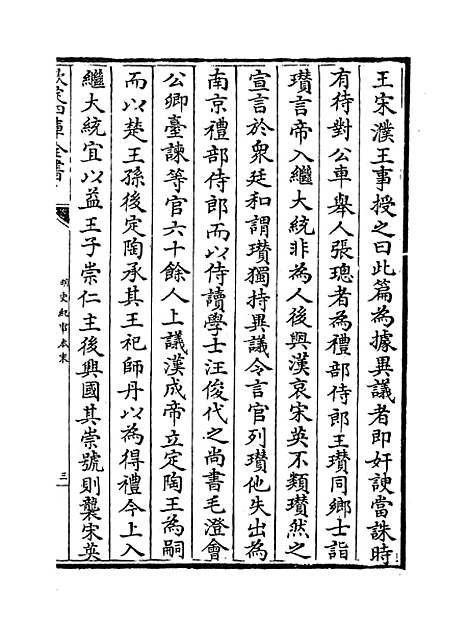 王宋濮王事授之曰此篇為據異議者即奸諛當誅時
有待對公車舉人張璁者為禮部侍郎王瓚同鄉士詣
瓚言帝入繼大統非為人後與漢哀宋英不類瓚然之
宣言於衆廷和謂瓚獨持異議令言官列瓚他失出為
南京禮部侍郎而以侍讀學士汪俊代之尚書毛澄會
公卿臺諫等官六十餘人上議漢成帝立定陶王為嗣
而以楚王孫後定陶承其王祀師丹以為得禮今上入
繼大統宜以益王子崇仁主後興國其崇號則襲宋英
欽定四庫全書
明史紀事本末
三